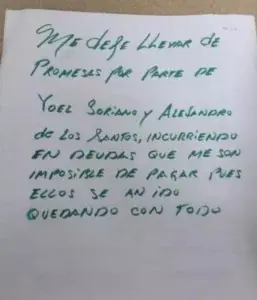 Me deje llevar de
Promesas por parte de
Yoel Soriano y Alejandro
de los Santos, incurriendo
en deudas que me son
imposible de pagar pues
ellos se an ido
quedando con todo